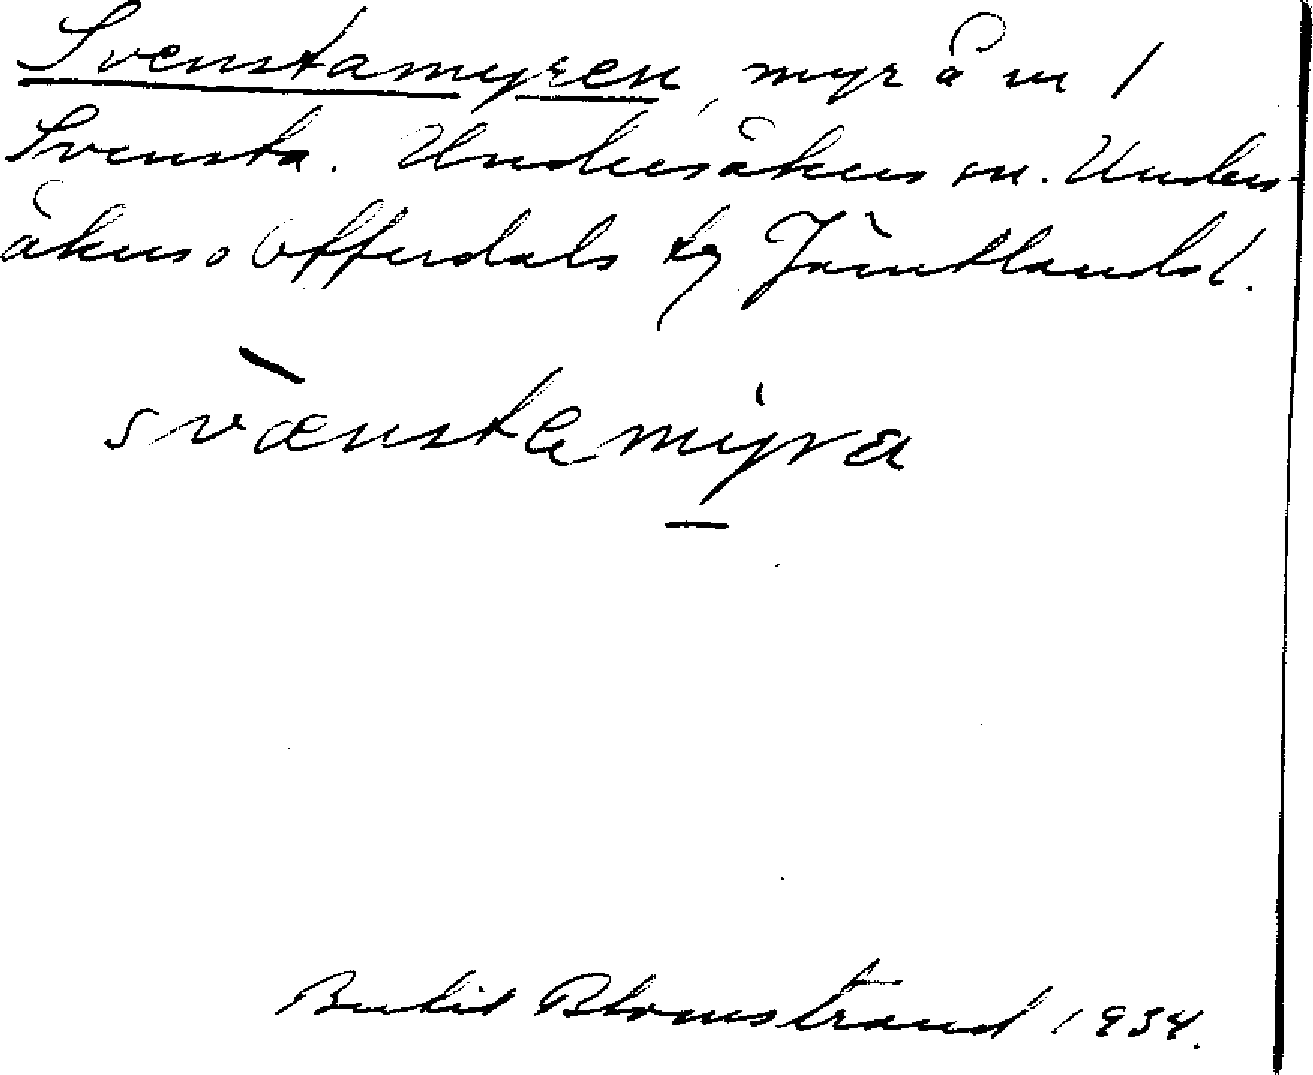 Svenstamyren, myr å m 1
Svensta. Undersåkers sn. Unders-
åkers o Offerdals tg Jämtlands l.
svænstamyra
Blomstrand 1934.